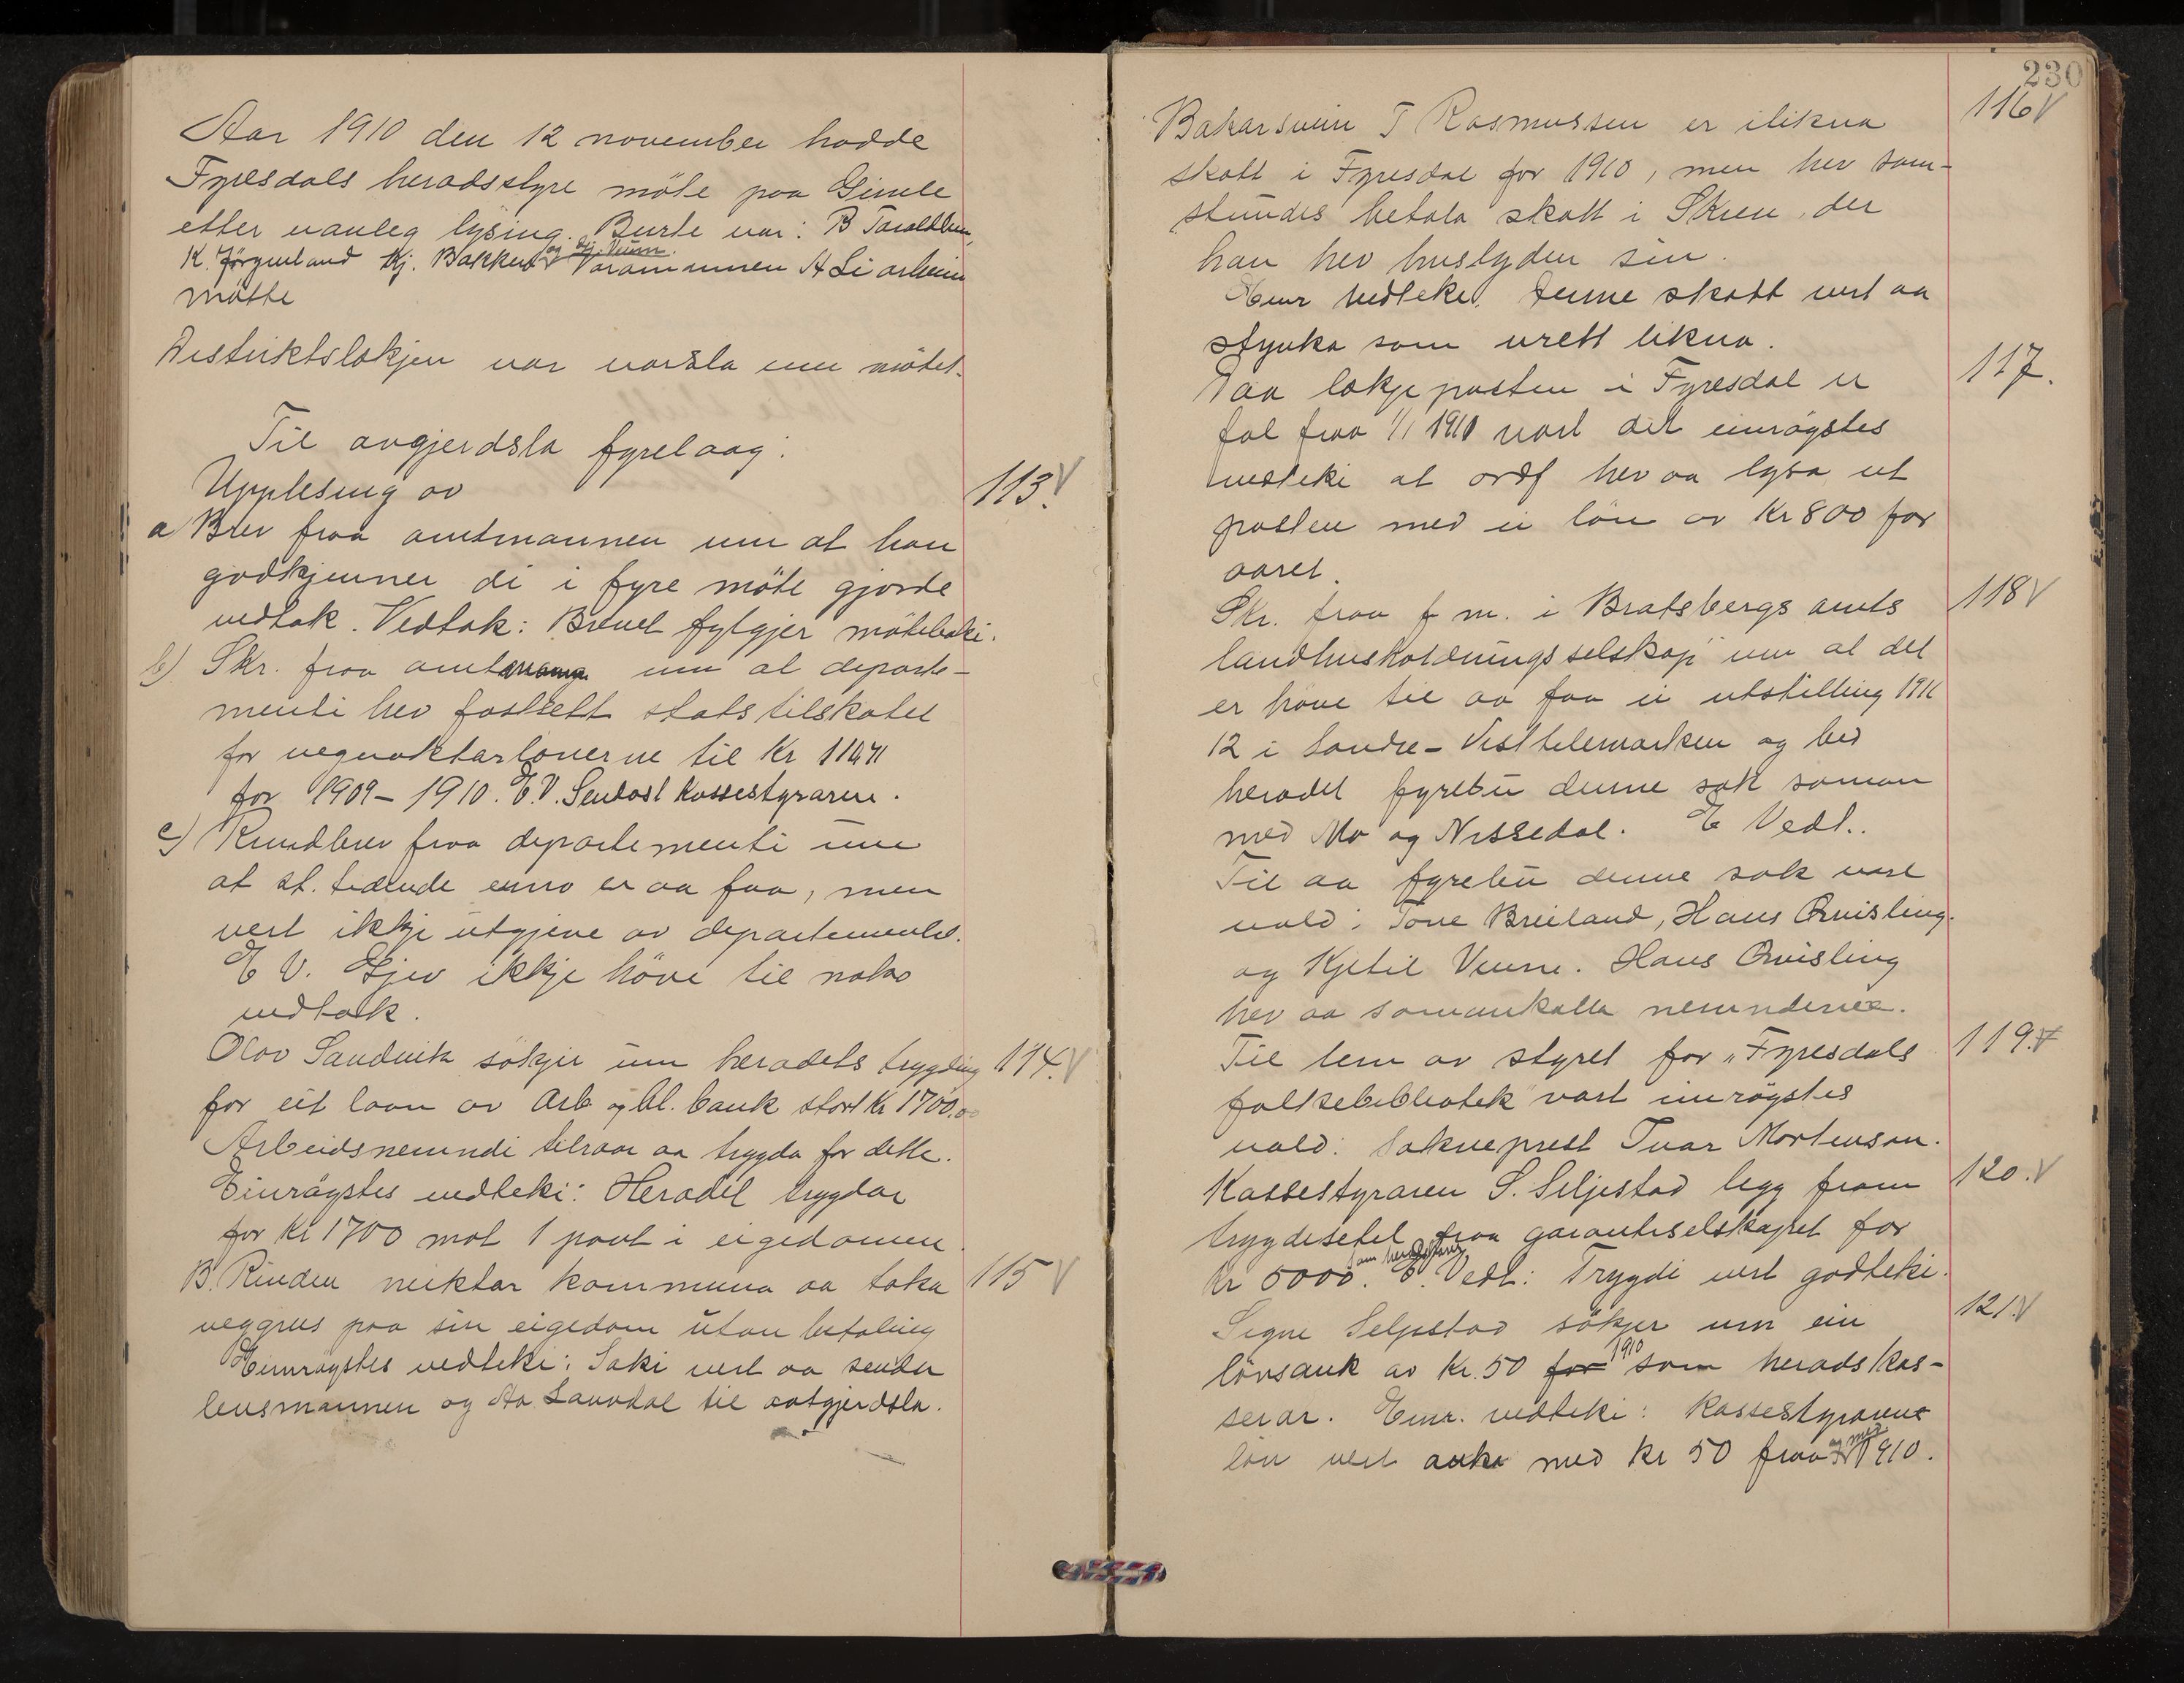 Aar 1910 den 12 november hadde
Fyresdals heradsstyre möte paa Gimle
etter vanleg lysing. Burte var: B Taraldlien,
K. Jörgenland Kj. Bakken og Kj. Veum. Varamannen A Li
mötte
Distriktslækjen var varsla um mötet.
Til avgjerdsla fyrelaag:
Upplesing av
113. V
a Brev fraa amtmannen um at han
godkjenner di i fyre möte gjorde
vedtak. Vedtak: Brevet fylgjer möteboki.
b) Skr. fraa um at departe-
menti hev fastsett statstilskotet
for vegvaktarlönerne til Kr
for 1909-1910. E. V. Sendast kassestyraren.
c) Rundbrev fraa departementi um
at st. tidende enno er aa faa, men
vert ikkje utgjeve av departementet.
E V. Gjev ikkje höve til noko
vedtak.
Olav Sandvik sökjer um heradets trygding 114. V
for eit laan av Arb og bl. bank stort Kr 1700,00
Arbeidsnemndi tilraar aa trygda for dette.
Einrögstes vedteki: Heradet trygdar
for Kr 1700 mot 1 pant i eigedomen
B. Rinden nektar kommuna aa taka 115 V
veggrus paa sin eigedom utan betaling
Einrögstes vedteki: Saki vert aa senda
lensmannen og Aa Lauvdal til aatgjerdsla.
230
Bakarsvein T Rasmussen er ilikna 116 V
skatt i Fyresdal for 1910, men hev sam-
stundes betala skatt i Skien, der
han hev huslyden sin.
Einr vedteke. Denne skatt vert aa
stryka som urett likna.
Daa lækjeposten i Fyresdal er 117.
fal fraa 1/1 1911 vart det einrögstes
vedteki at ordf hev aa lysa ut
posten med ei lön av Kr 800 for
aaret.
Skr. fraa f m. i Bratsbergs amts 118 V
landhusholdningsselskap um at det
er höve til aa faa ei utstilling 1911
12 i Söndre-Vesttelemarken og bed
heradet fyrebu denne sak saman
med Mo og Nissedal. E Vedt..
Til aa fyrebu denne sak vart
vald: Tone Breiland, Hans Qvisling.
og Kjetil Veum. Hans Qvisling
hev aa samankalla nemnderne.
Til lem av styret for "Fyresdals 119. V
folkebibliotek" vart einrögstes
vald: Sokneprest Ivar Mortenson.
Kassestyraren S. Seljestad legg fram 120. V
trygdesetel fraa garantiselskapet for
Kr 5000. E. Vedt: Trygdi vert godteki.
Signe Seljestad sökjer um ein 121. V
lönsauk av Kr. 50 for 1910 som heradskas-
serar. Einr. vedteki: Kassestyrarens
lön vert auka med Kr 50 fraa og med 1910.